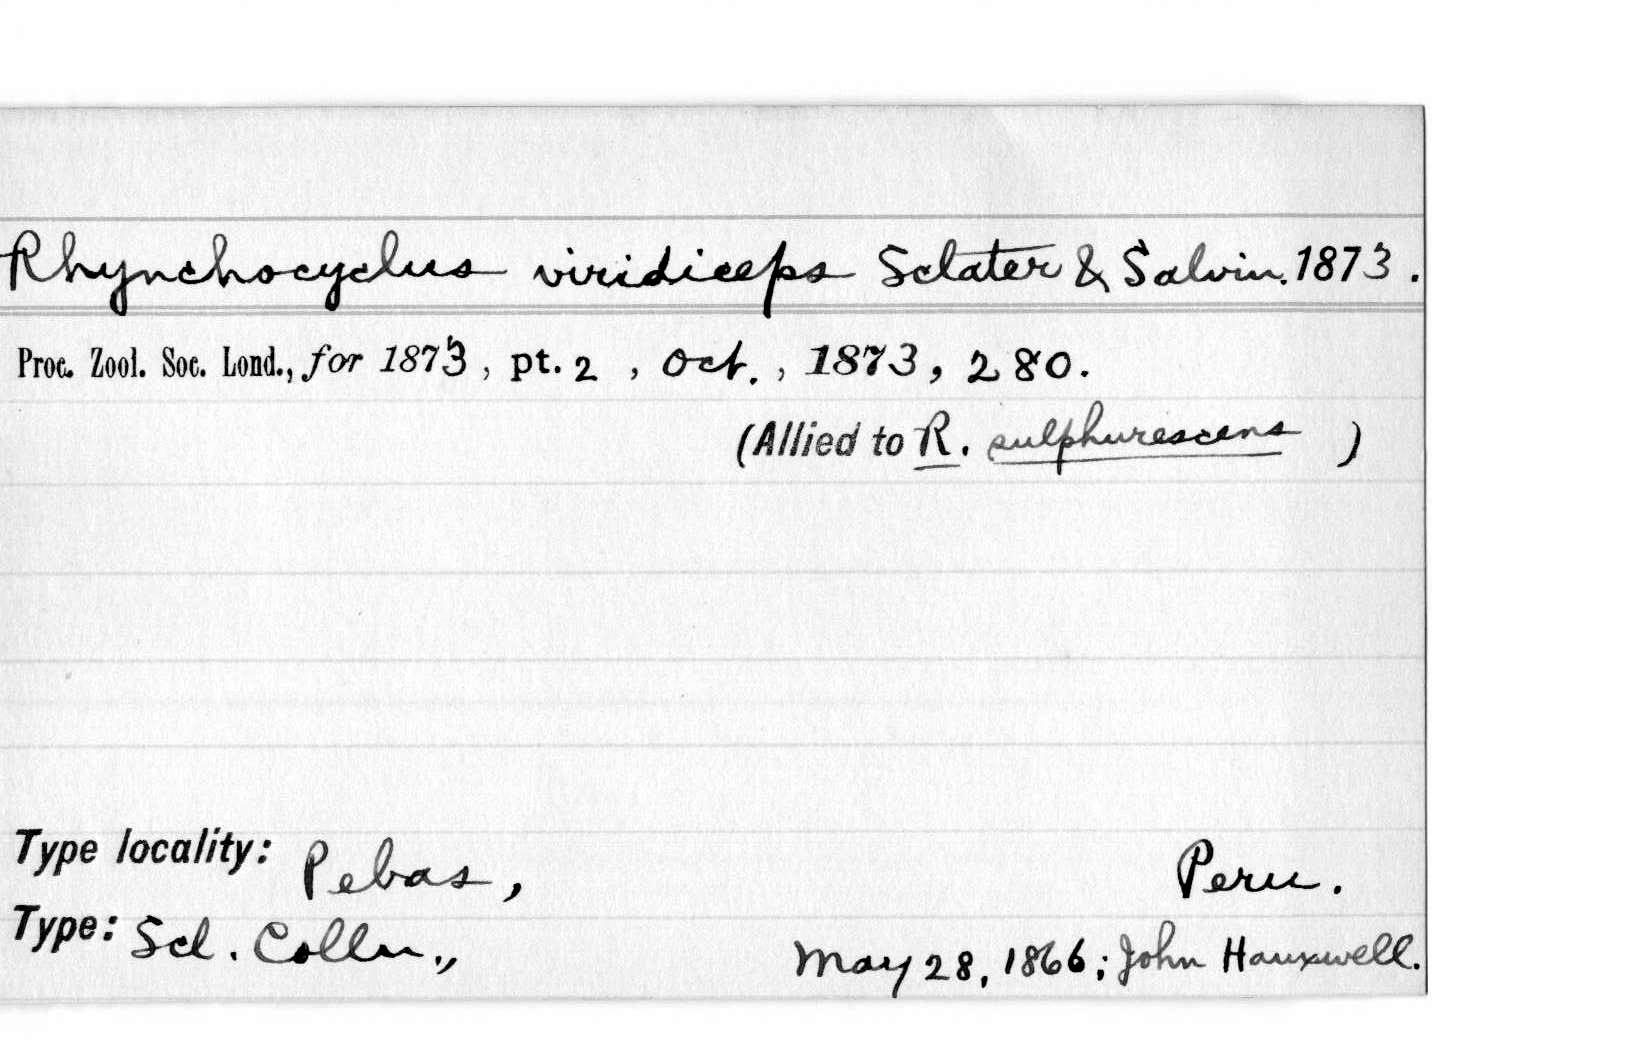 Rhynchocyclus viridiceps Sclater & Salvin. 1873.
Proc. Zool. Soc. Lond., for 1873, pt. 2, Oct., 1873, 280.
(Allied to R. sulphurescens )
Type locality: Pebas, Peru.
Type: Scl. Colln., May 28, 1866; John Hauxwell.